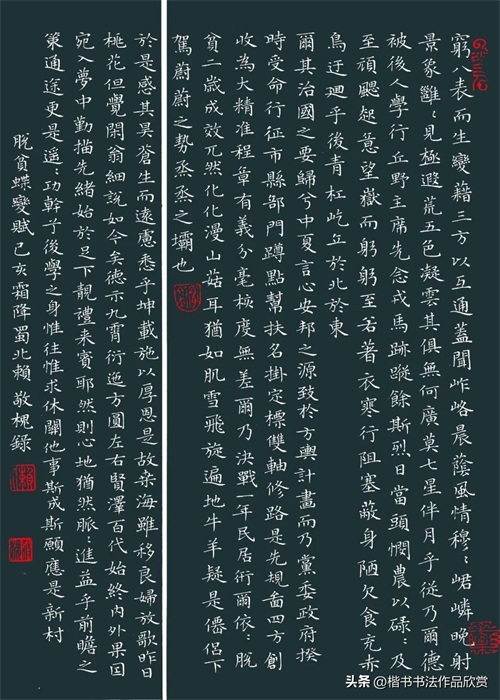 窮人表而生變藉三方以互通蓋聞岞峈晨蔭風情穆〻峮嶙晚射
景象雝〻見極遐荒五色凝雲其俱無何廣莫七星伴月乎從乃爾德
被後人學行丘野主席先念戎馬跡蹤餘斯烈日當頭憫農以碌〻及
至頑颸起意望嶽而躬躬至若著衣寒行阻塞蔽身陋欠食充赤
鳥迂迴乎後青杠屹立於北於東
爾其治國之要歸兮中夏言心安邦之源致於方輿計畫而乃黨委政府揆
時受命行征市縣部門蹲點幫扶名掛定標雙軸修路是先規畵四方創
收為大精准程章有義分毫極度無差爾乃決戰一年民居術爾依〻脫
貧二歲成效兀然化化漫山菇耳猶如肌雪飛旋遍地牛羊疑是僊侶下
駕蔚蔚之勢烝烝之壩也
於是感其昊蒼生而遠慮悉乎坤載施以厚恩是故桑海雖移良婦放歌昨日
桃花但覺閑翁細說如今矣德示九霄衍迤方圓左右賢澤百代始終內外果因
宛入夢中勤描先緒始於足下靚禮來賓耶然則心地猶然脈〻進益乎前瞻之
策通途更是遥〻功幹予後學之身惟往惟求休關他事斯成斯願應是新村
脫貧蝶變賦己亥霜降蜀北賴敬槐錄
頭条 @楷书书法作品欣赏